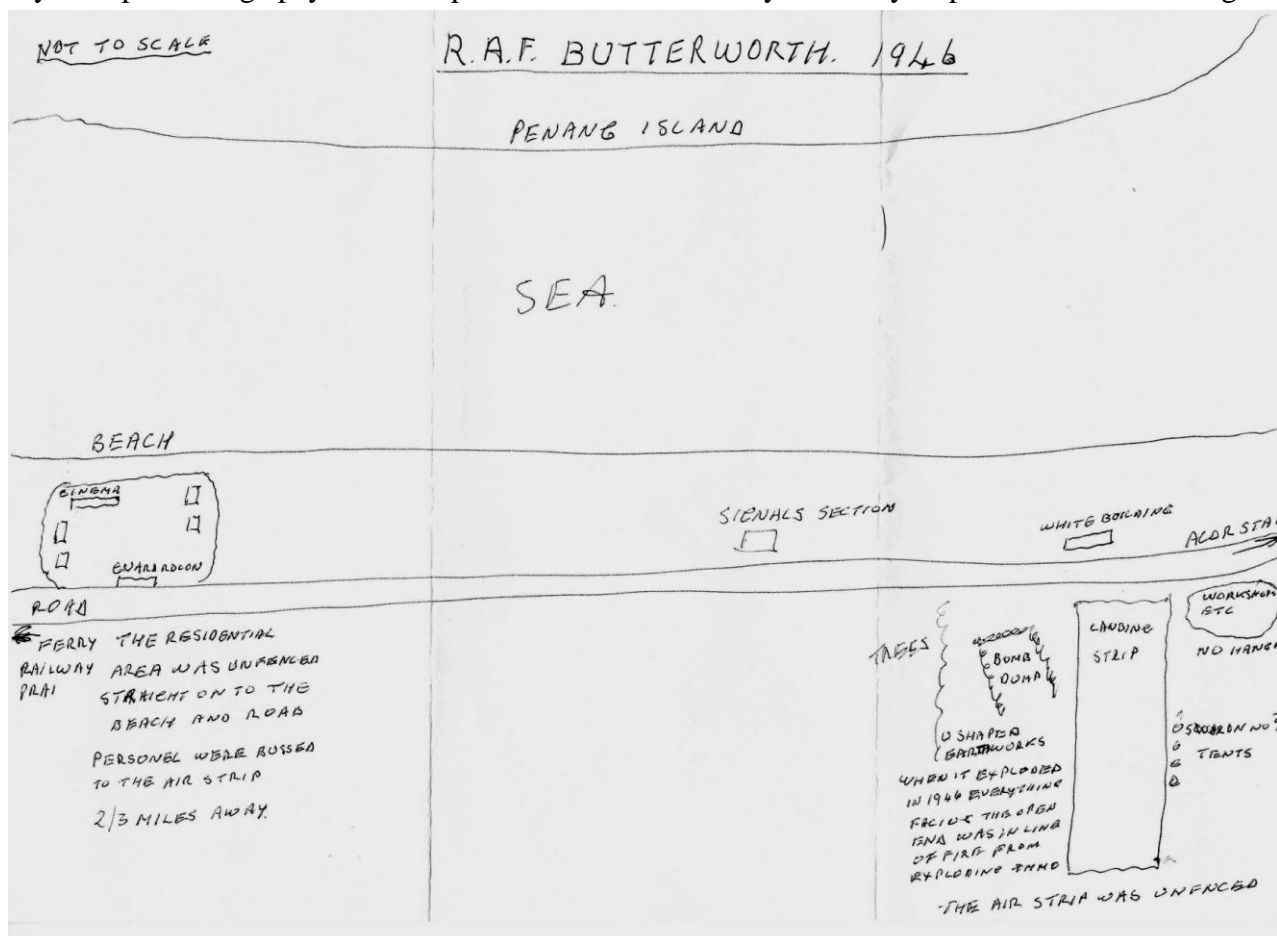 NOT TO SCALE
R.A.F. BUTTERWORTH. 1946
PENANG ISLAND
SEA
BEACH
CINEMA
SIGNALS SECTION
WHITE BUILDING
ALOR STA
ROAD
FERRY
RAILWAY
PRAI
THE RESIDENTIAL
AREA WAS UNFENCED
STRAIGHT ON TO THE
BEACH AND ROAD
PERSONEL WERE BUSSED
TO THE AIR STRIP
2/3 MILES AWAY.
TREES
BOMB
DUMP
U SHAPED
EARTHWORKS
WHEN IT EXPLODED
IN 1946 EVERYTHING
FACING THE OPEN
END WAS IN LINE
OF FIRE FROM
EXPLODING AMMO
LANDING
STRIP
WORKSHOPS
ETC
NO HANGA
TENTS
THE AIR STRIP WAS UNFENCED